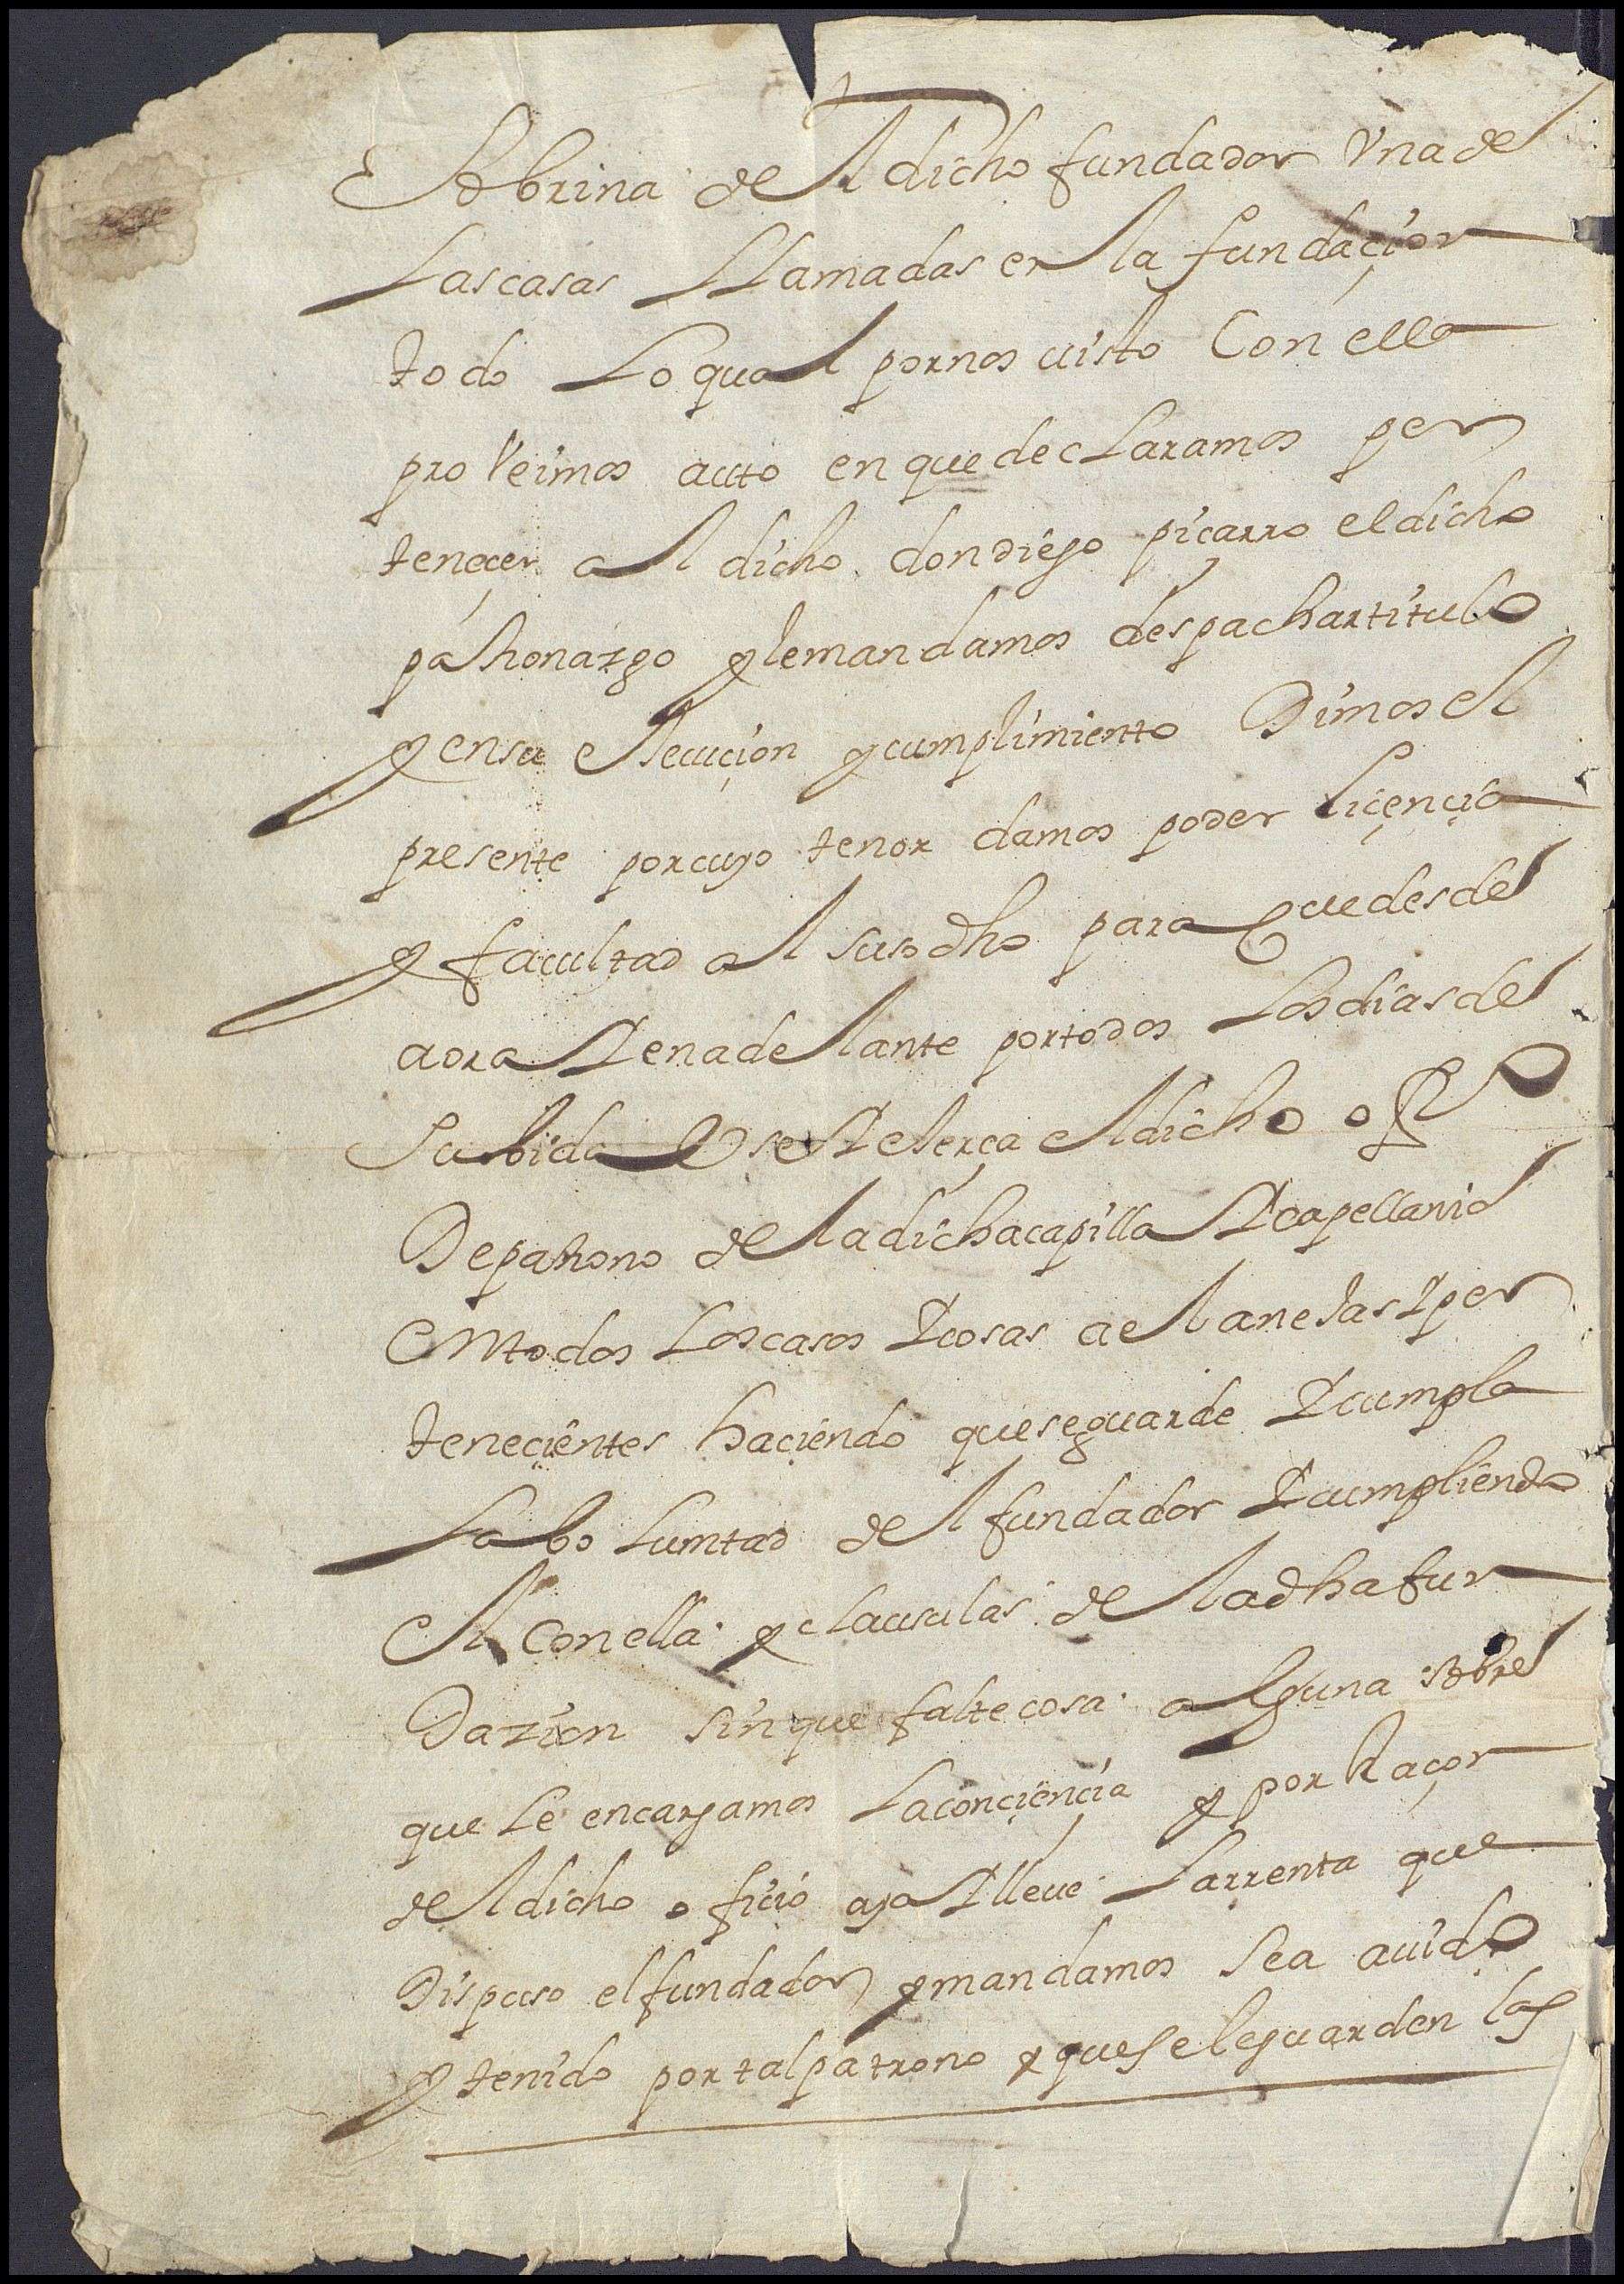 Sobrina del dicho fundador Una de
Las casas Llamadas en la fundaçion
todo Lo qual por nos uisto Con ella
proVeimos auto en que decLaramos per
teneçer al dicho don diego piçarro el dicho
patronazgo y le mandamos despachar titulo
y en su eJecuçion y cumplimiento Dimos el
presente por cuyo tenor damos poder liçençia
y facultad al suso dho para que desde
aora Y en adelante por todos Los dias de
Su bida Vse Y eJerça el dicho offº
De patrono de la dicha capilla Y capellania
en todos Los casos Y cosas a el aneJas Y per
teneçientes haçiendo que se guarde Y cumpla
La boLumtad del fundador Y cumpliendo
el con ella y clausulas de la dha fun
Dazion sin que falte cosa alguna sobre
que Le encargamos La conçiençia y por Raçon
del dicho ofiçio aya Y lleue La rrenta que
Dispuso el fundador y mandamos sea auido
y tenido por tal patrono y que se le guarden las